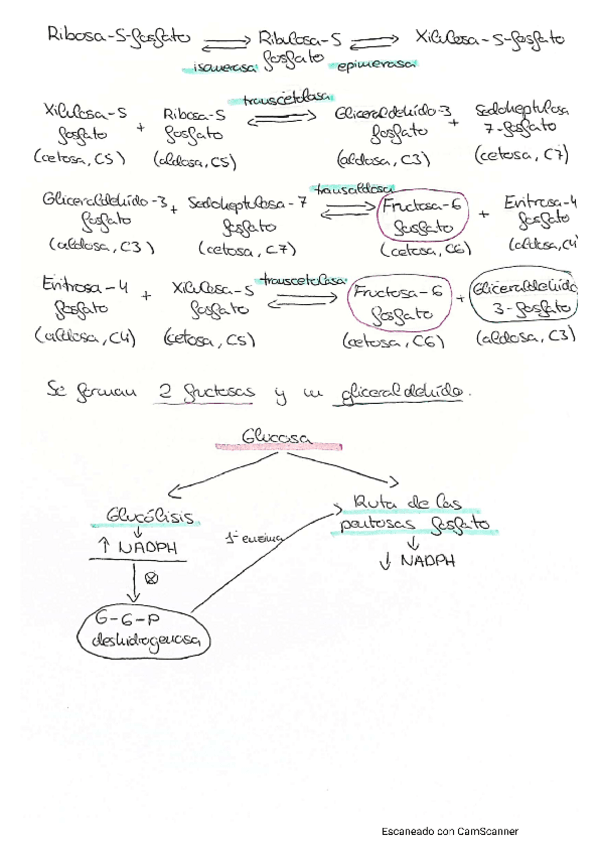 Ribosa-5-fosfato ⇌ Ribulosa-5 fosfato ⇌ Xilulosa-5-fosfato
isomerasa epimerasa
transcetolasa
Xilulosa-5 fosfato + Ribosa-5 fosfato ⇌ Gliceraldehído-3 fosfato + Sedoheptulosa 7-fosfato
(cetosa, C5) (aldosa, C5) (aldosa, C3) (cetosa, C7)
transaldosa
Gliceraldehído-3 fosfato + Sedoheptulosa-7 fosfato ⇌ Fructosa-6 fosfato + Eritrosa-4 fosfato
(aldosa, C3) (cetosa, C7) (cetosa, C6) (aldosa, C4
transcetolasa
Eritrosa-4 fosfato + Xilulosa-5 fosfato ⇌ Fructosa-6 fosfato + Gliceraldehído 3-fosfato
(aldosa, C4) (cetosa, C5) (cetosa, C6) (aldosa, C3)
Se forman 2 fructosas y un gliceraldehído.
Glucosa
Glucólisis
↑ NADPH
⊗
G-6-P
deshidrogenasa
1ª enzima
Ruta de las
pentosas fosfato
↓ NADPH
Escaneado con CamScanner